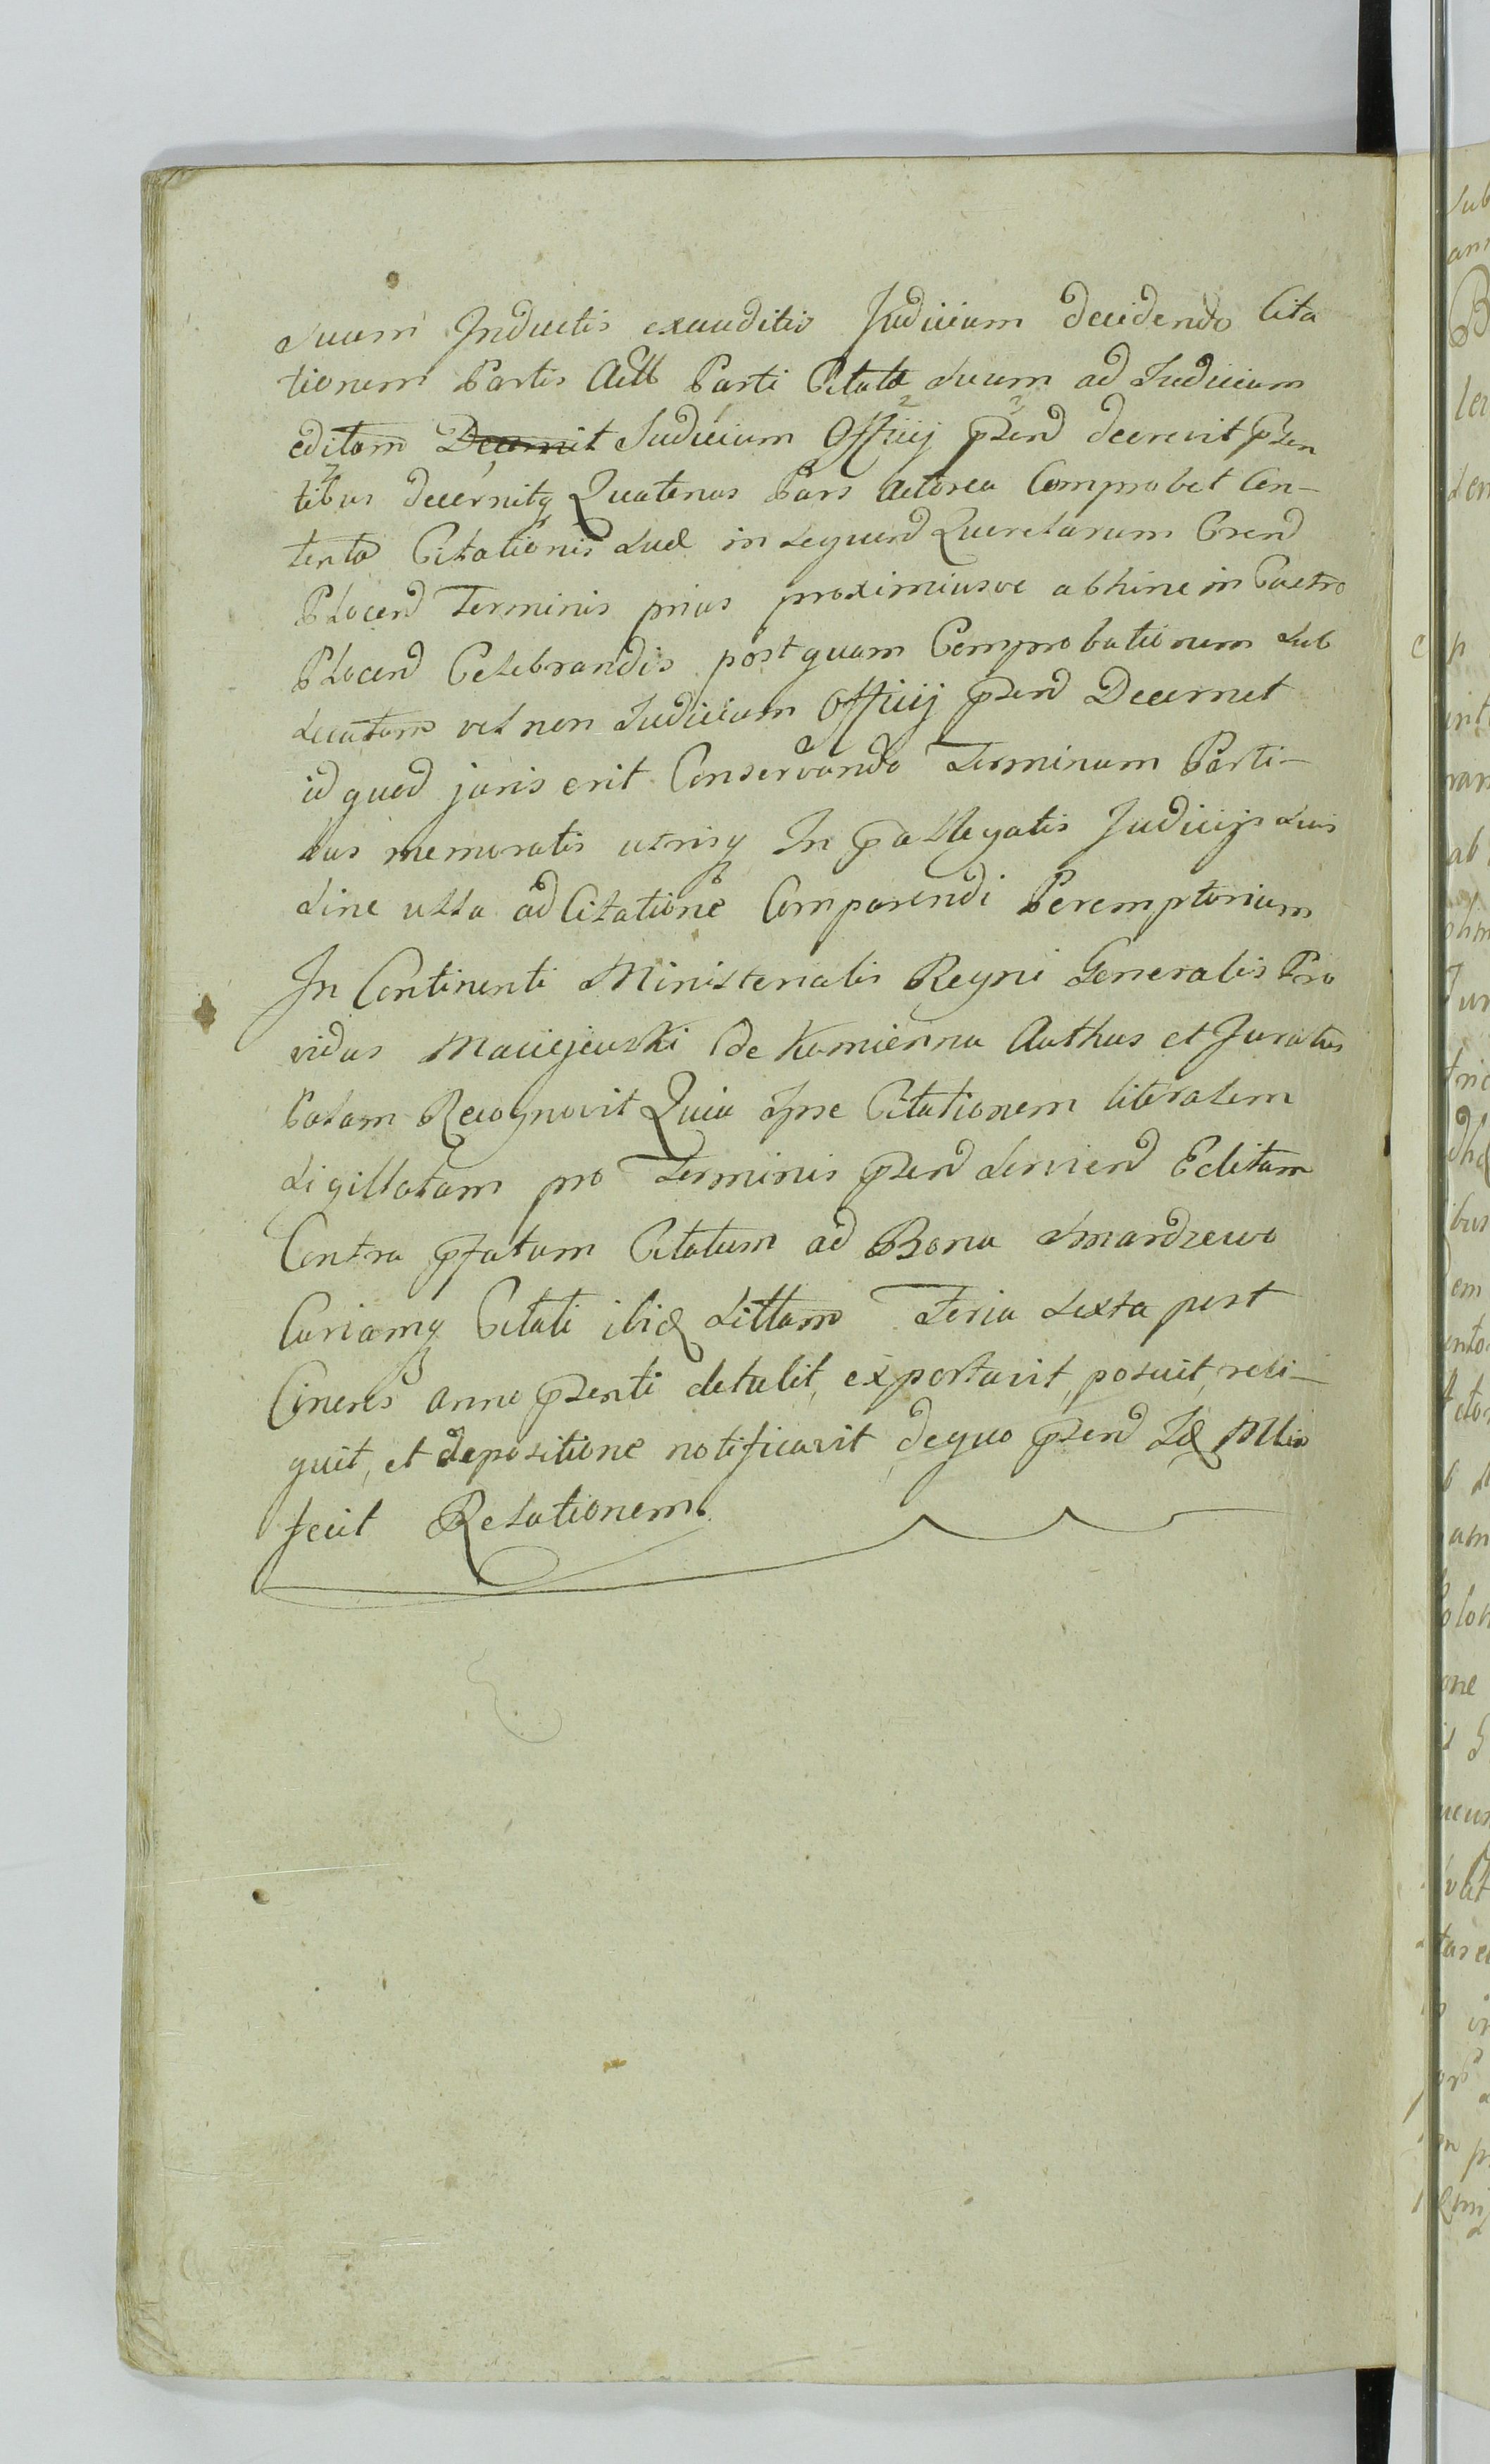 suum Inductis exauditis Judicium decidendo Cita
tionem Partis Act Parti Citata suum ad Judicium
editam Decernit Judicium Officij pzend decrevit pzen
tibus decernitq Quatenus Pars Actorea Comprobet Con-
tenta Citationis suæ in sequend Querelarum Crend
Plocend Terminis prius proximiusve abhinc in Castro
Plocend Celebrandis postquam Comprobationem sub
secutam vel non Judicium Officij pzend Decernet
id quod juris erit Conservando Terminum Parti-
bus memoratis utrisq In pallegatis Judicijs suis
sine ulla ad Citatione Comparendi Peremptorium
In Continenti Ministerialis Regni Generalis Pro
vidus Maciejewski de Kamienna Authus et Juratus
Palam Recognovit Quia Ipse Citationem literalem
sigillatam pro Terminis pzend serviend Editam
Contra pfatum Citatum ad Bona Smardzewo
Curiamq Citati ibid sittam Feria sexta post
Cineres anno pzenti detulit, exportavit, posuit, reli-
quit, et depositione notificavit, dequo pzend Id Mlis
fecit Relationem.